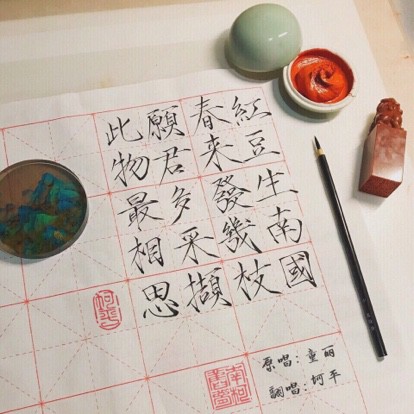 紅豆生南國
春來發幾枝
願君多采擷
此物最相思
原唱：童丽
翻唱：坷平